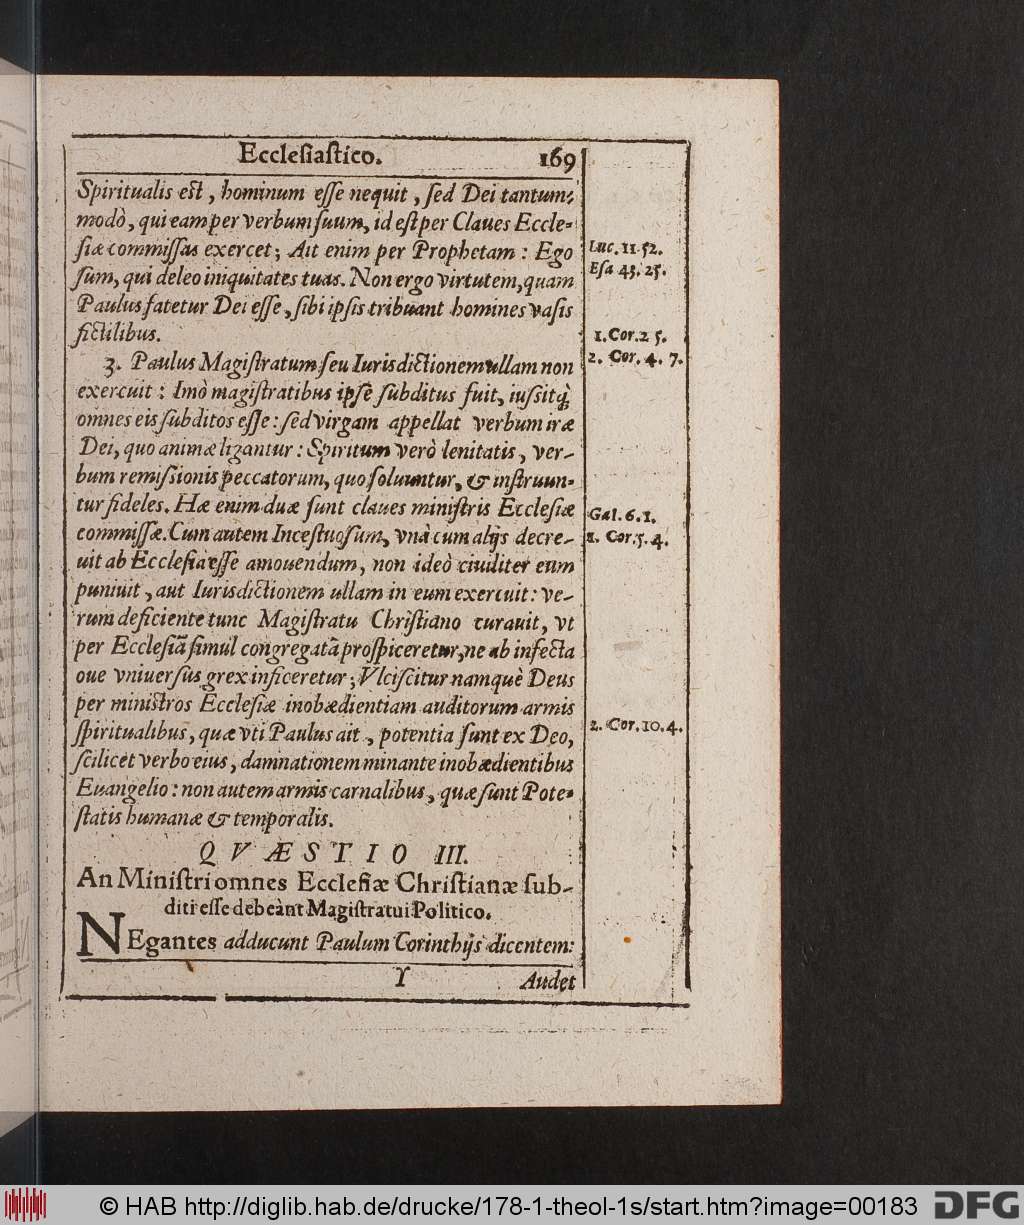 Ecclesiastico. 169
Spiritualis est, hominum esse nequit, sed Dei tantum-
modò, qui eam per verbum suum, id est per Claues Eccle-
siæ commissas exercet; Ait enim per Prophetam: Ego
sum, qui deleo iniquitates tuas. Non ergo virtutem, quam
Paulus fatetur Dei esse, sibi ipsis tribuant homines vasis
fictilibus.
3. Paulus Magistratum seu Iurisdictionem ullam non
exercuit: Imò magistratibus ipse subditus fuit, iussitq́;
omnes eis subditos esse: sed virgam appellat verbum iræ
Dei, quo animæ ligantur: Spiritum verò lenitatis, ver-
bum remissionis peccatorum, quo soluuntur, & instruun-
tur fideles. Hæ enim duæ sunt claues ministris Ecclesiæ
commissæ. Cum autem Incestuosum, vnà cum alijs decre-
uit ab Ecclesia esse amouendum, non ideò ciuiliter eum
puniuit, aut Iurisdictionem ullam in eum exercuit: ve-
rum deficiente tunc Magistratu Christiano curauit, vt
per Ecclesiā simul congregatā prospiceretur, ne ab infecta
oue vniuersus grex inficeretur; Vlciscitur namquè Deus
per ministros Ecclesiæ inobædientiam auditorum armis
spiritualibus, quæ vti Paulus ait, potentia sunt ex Deo,
scilicet verbo eius, damnationem minante inobædientibus
Euangelio: non autem armis carnalibus, quæ sunt Pote-
statis humanæ & temporalis.
QVÆSTIO III.
An Ministri omnes Ecclesiæ Christianæ sub-
diti esse debeànt Magistratui Politico.
NEgantes adducunt Paulum Corinthijs dicentem:
Y Audet
Luc. 11. 52.
Esa 43. 25.
1. Cor. 2 5.
2. Cor. 4. 7.
Gal. 6. 1.
1. Cor. 5. 4.
2. Cor. 10. 4.
© HAB http://diglib.hab.de/drucke/178-1-theol-1s/start.htm?image=00183 DFG